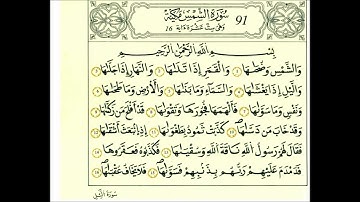 سُورَةُ الشَّمْسِ مَكِّيَّةٌ 91
وَهِيَ سِتَّ عَشْرَةَ ءَايَةً 16
بِسْمِ اللَّهِ الرَّحْمَٰنِ الرَّحِيمِ
وَالشَّمْسِ وَضُحَىٰهَا وَالْقَمَرِ إِذَا تَلَىٰهَا وَالنَّهَارِ إِذَا جَلَّىٰهَا
وَالَّيْلِ إِذَا يَغْشَىٰهَا وَالسَّمَآءِ وَمَا بَنَىٰهَا وَالْأَرْضِ وَمَا طَحَىٰهَا
وَنَفْسٍ وَمَا سَوَّىٰهَا فَأَلْهَمَهَا فُجُورَهَا وَتَقْوَىٰهَا قَدْ أَفْلَحَ مَن زَكَّىٰهَا
وَقَدْ خَابَ مَن دَسَّىٰهَا كَذَّبَتْ ثَمُودُ بِطَغْوَىٰهَا إِذِ انبَعَثَ أَشْقَىٰهَا
فَقَالَ لَهُمْ رَسُولُ اللَّهِ نَاقَةَ اللَّهِ وَسُقْيَٰهَا فَكَذَّبُوهُ فَعَقَرُوهَا
فَدَمْدَمَ عَلَيْهِمْ رَبُّهُم بِذَنۢبِهِمْ فَسَوَّىٰهَا فَلَا يَخَافُ عُقْبَىٰهَا
سُورَةُ الَّيْلِ